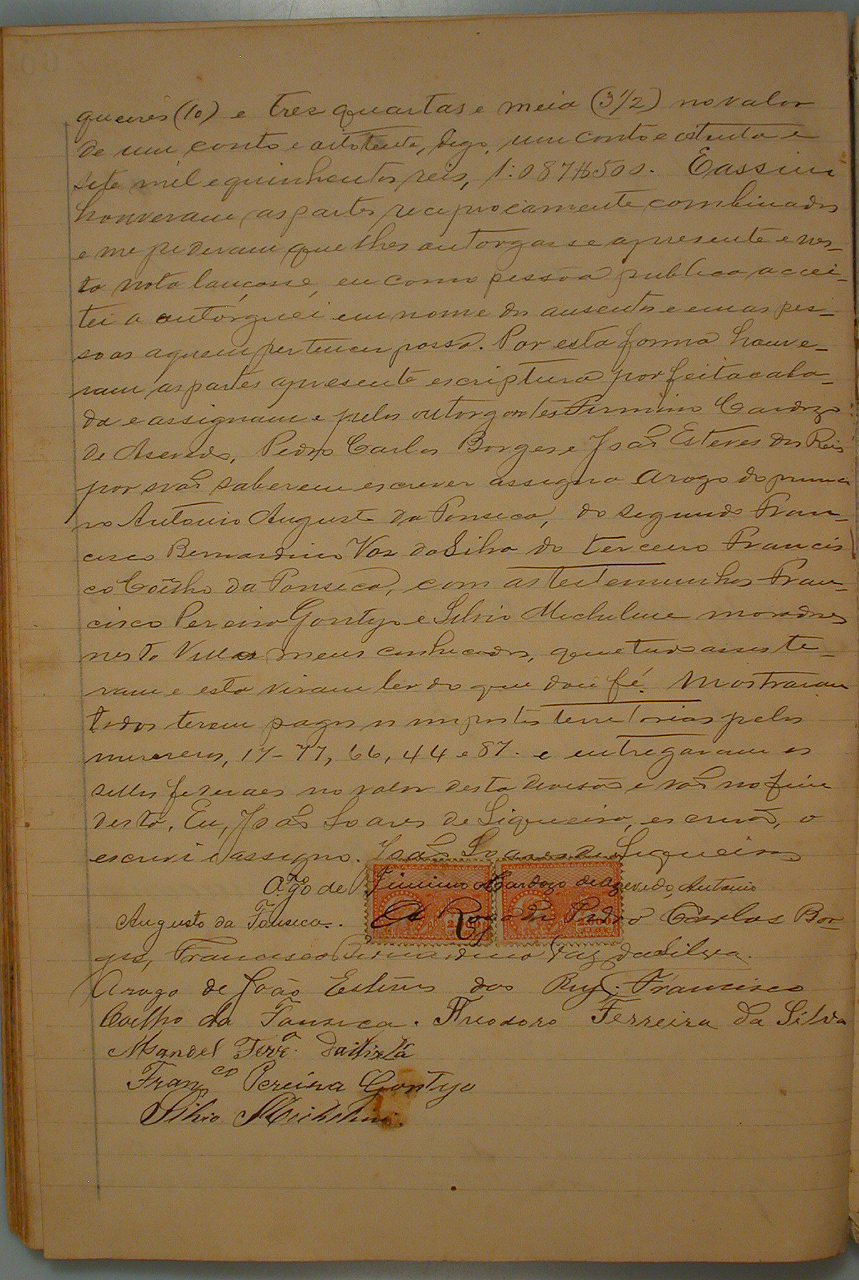 queires (10) e tres quartas e meia (3 1/2) no valor
de um conto e oitotenta, digo, um conto e oitenta e
sete mil e quinhentos reis, 1:087$500. E assim
houveram as partes reciprocamente combinados
e me pederam que lhes outorgasse a presente e nes-
ta nota lançasse, eu como pessôa publica accei-
tei e outorguei em nome dos ausentes e em as pes-
soas a quem pertencer possa. Por esta forma houve-
ram as partes a presente escriptura por feita e aca-
da e assignam e pelos outorgantes Firmino Cardozo
de Asevedo, Pedro Carlos Borges e João Esteves dos Reis
por não saberem escrever assigna arogo do primei
ro Antonio Augusto da Fonseca, do segundo Fran-
cisco Bernardino Vaz da Silva do terceiro Francis
co Coêlho da Fonseca, com as testemunhas Fran-
cisco Pereira Gontyo e Silvio Michelini moradores
nesta Villa meus conhecidos, que tudo assiste-
ram e esta viram ler do que dou fé. Mostraram
todos terem pagos os impostos territorias pelos
numeros, 17-77, 66, 44 e 87. e entregaram os
sellos federaes no valor desta divisão e vão no fim
desta. Eu, João Soares de Siqueira, escrivão, o
escrevi e assigno. João Soares de Siqueira
Aºgo de Firmino Cardozo de Azevedo, Antonio
Augusto da Fonseca. A Rogo de Pedro Carlos Bor-
ges, Francisco Bernardino Vaz da Silva.
Arogo de João Esteves dos Reys. Francisco
Coelho da Fonseca. Theodoro Ferreira da Silva
Manoel Ferrª. da
Franco Pereira Gontyo
Silvio Michelini.